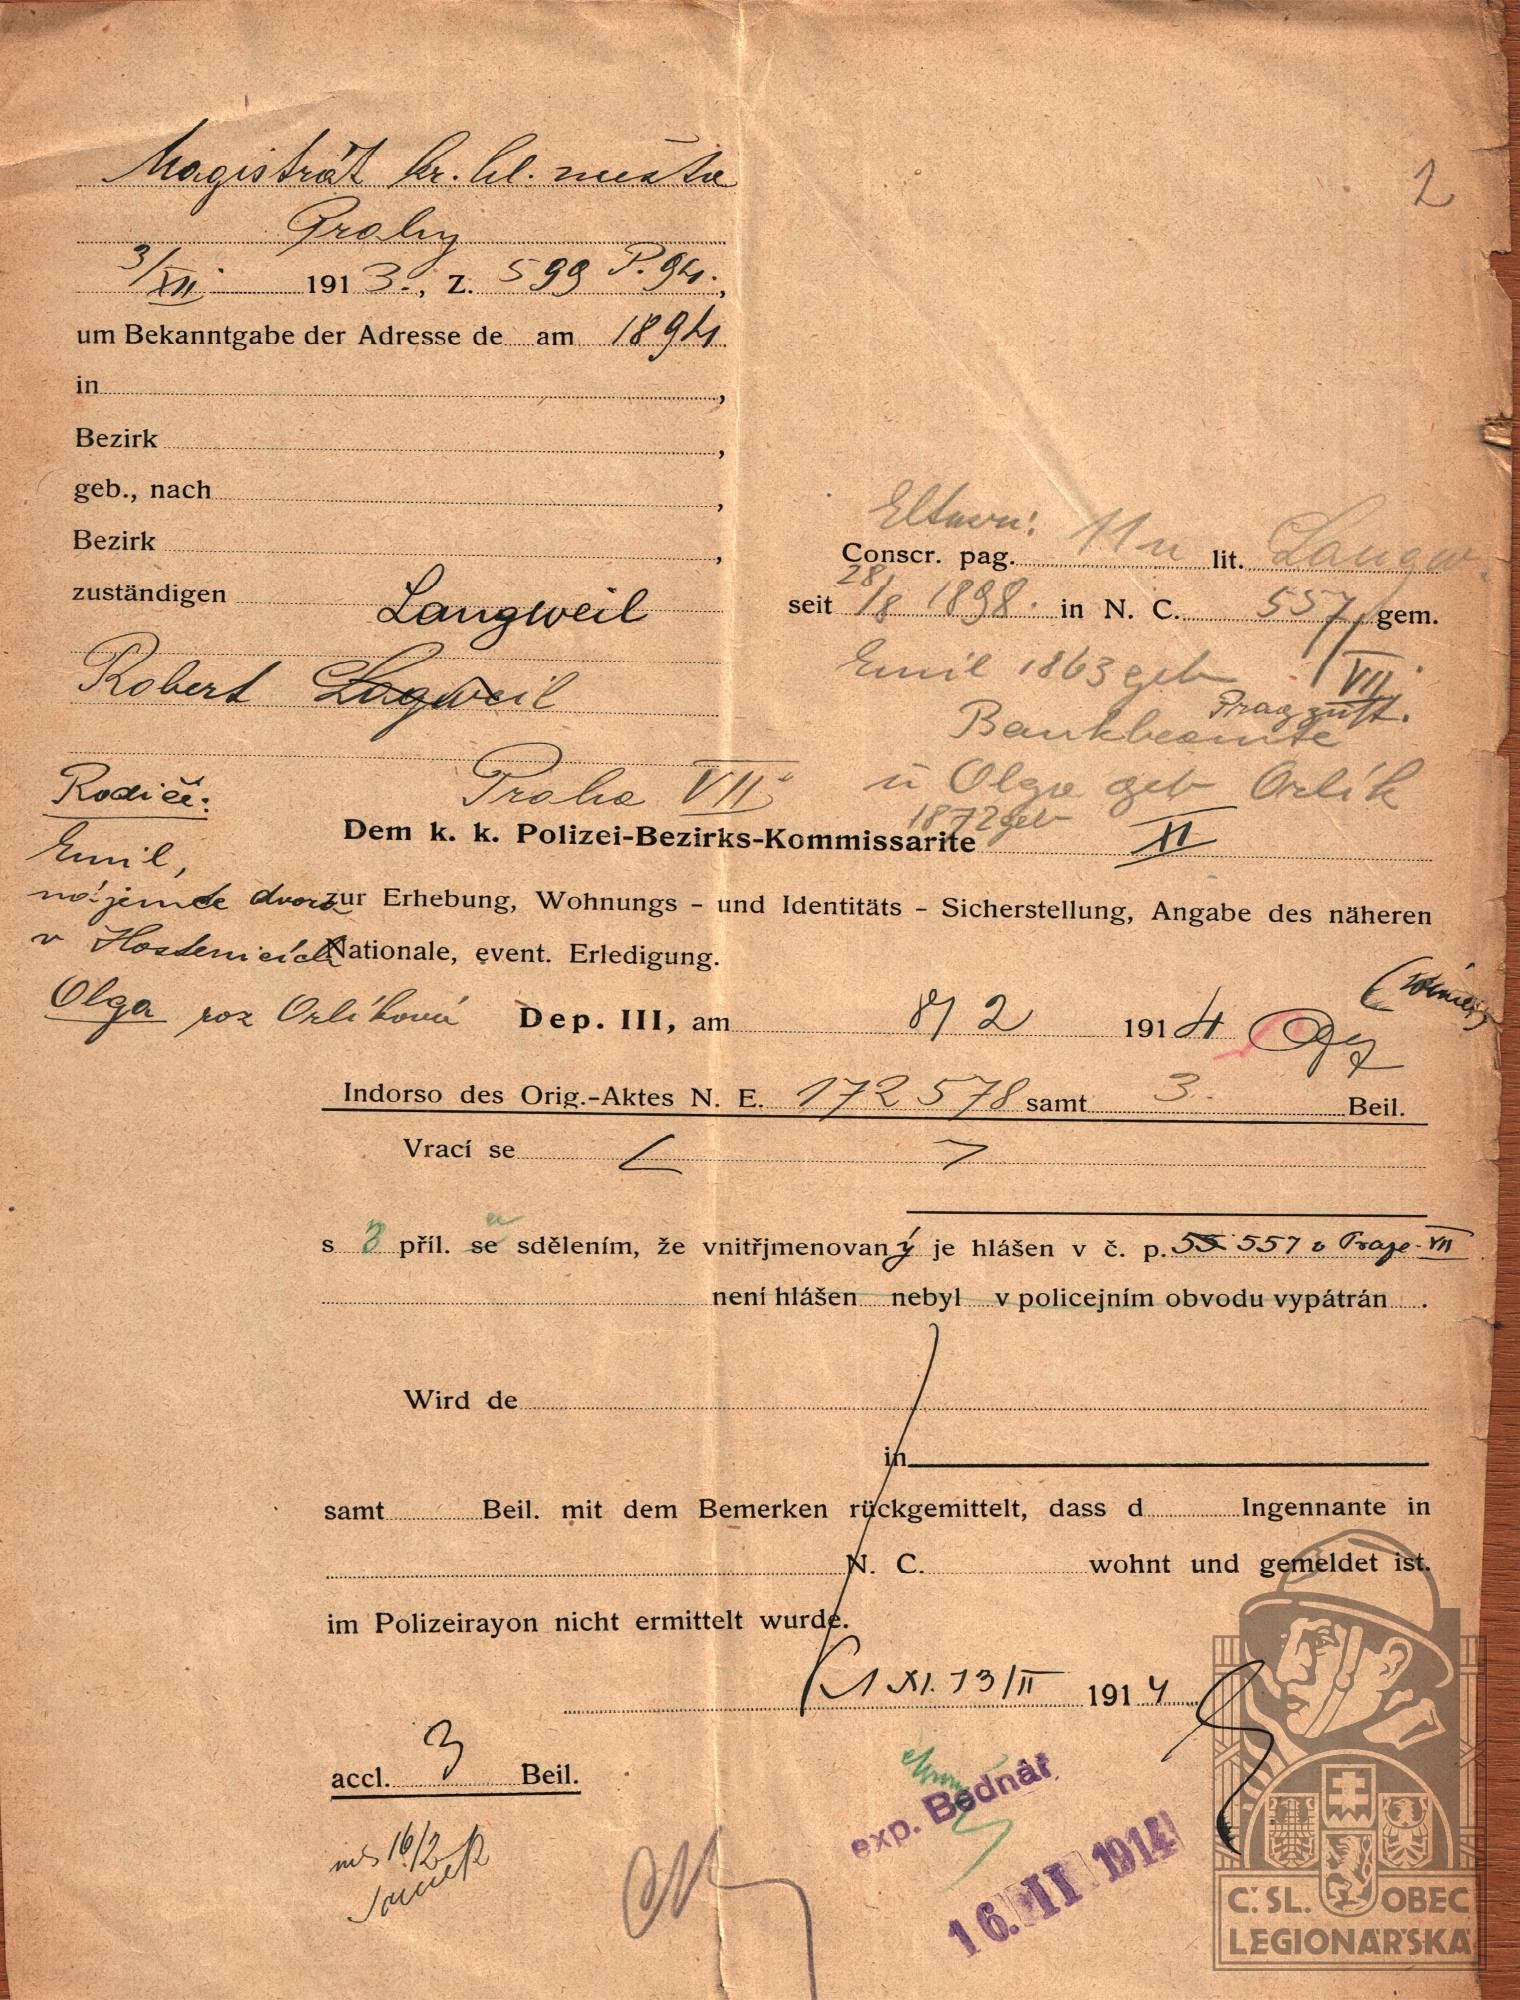 Magistrát kr. hl. města
Prahy
2
3/XII. 1913., Z. 599 P. 94.,
um Bekanntgabe der Adresse de am 1894
in ,
Bezirk ,
geb., nach ,
Bezirk ,
Eltern:
Conscr. pag. 11 lit. Langw.
zuständigen Langweil
seit 28/8 1898. in N. C. 557/ gem.
VII
Robert Langweil
Emil 1863 geb
Prag zust.
Bankbeamte
Praha VII
u Olga geb Orlík
1872 geb
Rodiče:
Dem k. k. Polizei-Bezirks-Kommissarite XI
Emil,
nájemce dvora
v Hostenicích
Olga roz Orlíková
zur Erhebung, Wohnungs - und Identitäts - Sicherstellung, Angabe des näheren
Nationale, event. Erledigung.
Dep. III, am 8/2 1914
Indorso des Orig.-Aktes N. E. 172578 samt 3. Beil.
Vrací se
s 3 příl. se sdělením, že vnitřjmenovaný je hlášen v č. p. 55 557 v Praze-VII
není hlášen nebyl v policejním obvodu vypátrán .
Wird de
in
samt Beil. mit dem Bemerken rückgemittelt, dass d Ingennante in
N. C. wohnt und gemeldet ist.
im Polizeirayon nicht ermittelt wurde.
XI. 13/II 1914
accl. 3 Beil.
16/2
exp. Bednář
16. II 1914
Č.SL. OBEC
LEGIONÁŘSKÁ